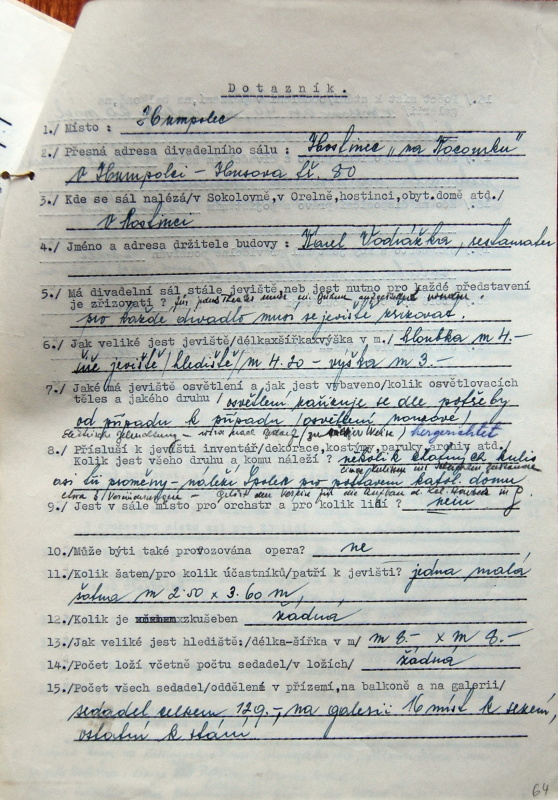 Dotazník.
1./ Místo : Humpolec
2./ Přesná adresa divadelního sálu : Hostinec „na Kocourku"
v Humpolci – Husova tř. 80
3./ Kde se sál nalézá/v Sokolovně,v Orelně,hostinci,obyt.domě atd./
v hostinci
4./ Jméno a adresa držitele budovy : Karel Vodrážka, restaurater
5./ Má divadelní sál stále jeviště,neb jest nutno pro každé představení
je zřizovati ? für jedes Theater muss eine Bühne aufgestellt werden.
pro každé divadlo musí se jeviště zřizovat.
6./ Jak veliké jest jeviště/délkaxšířkaxvýška v m./ hloubka m 4.-
šíře jeviště/hlediště/ m 4.20 – výška m 3.–
7./ Jaké má jeviště osvětlení a jak jest vybaveno/kolik osvětlovacích
těles a jakého druhu/ osvětlení zařizuje se dle potřeby
od případu k případu /osvětlení nouzové/
wird nach Bedarf hergerichtet
8./ Přísluší k jevišti inventář/dekorace,kostýmy,paruky,archiv atd.
Kolik jest všeho druhu a komu náleží ? několik starých kulis
asi tři proměny – náleží Spolek pro postavení katol. domu
etwa 3 Veränderungen – gehört dem Verein für
9./ Jest v sále místo pro orchstr a pro kolik lidí ? není
10./Může býti také provozována opera? ne
11./Kolik šaten/pro kolik účastníků/patří k jevišti? jedna malá
šatna m 2.50 x 3.60 m
12./Kolik je zkušeben žádná
13./Jak veliké jest hlediště:/délka-šířka v m/ m 8.- x m 8.-
14./Počet loží včetně počtu sedadel/v ložích/ žádná
15./Počet všech sedadel/oddělené v přízemí,na balkoně a na galerii/
sedadel celkem 129.-, na galerii 16 míst k sezení,
ostatní k stání
64